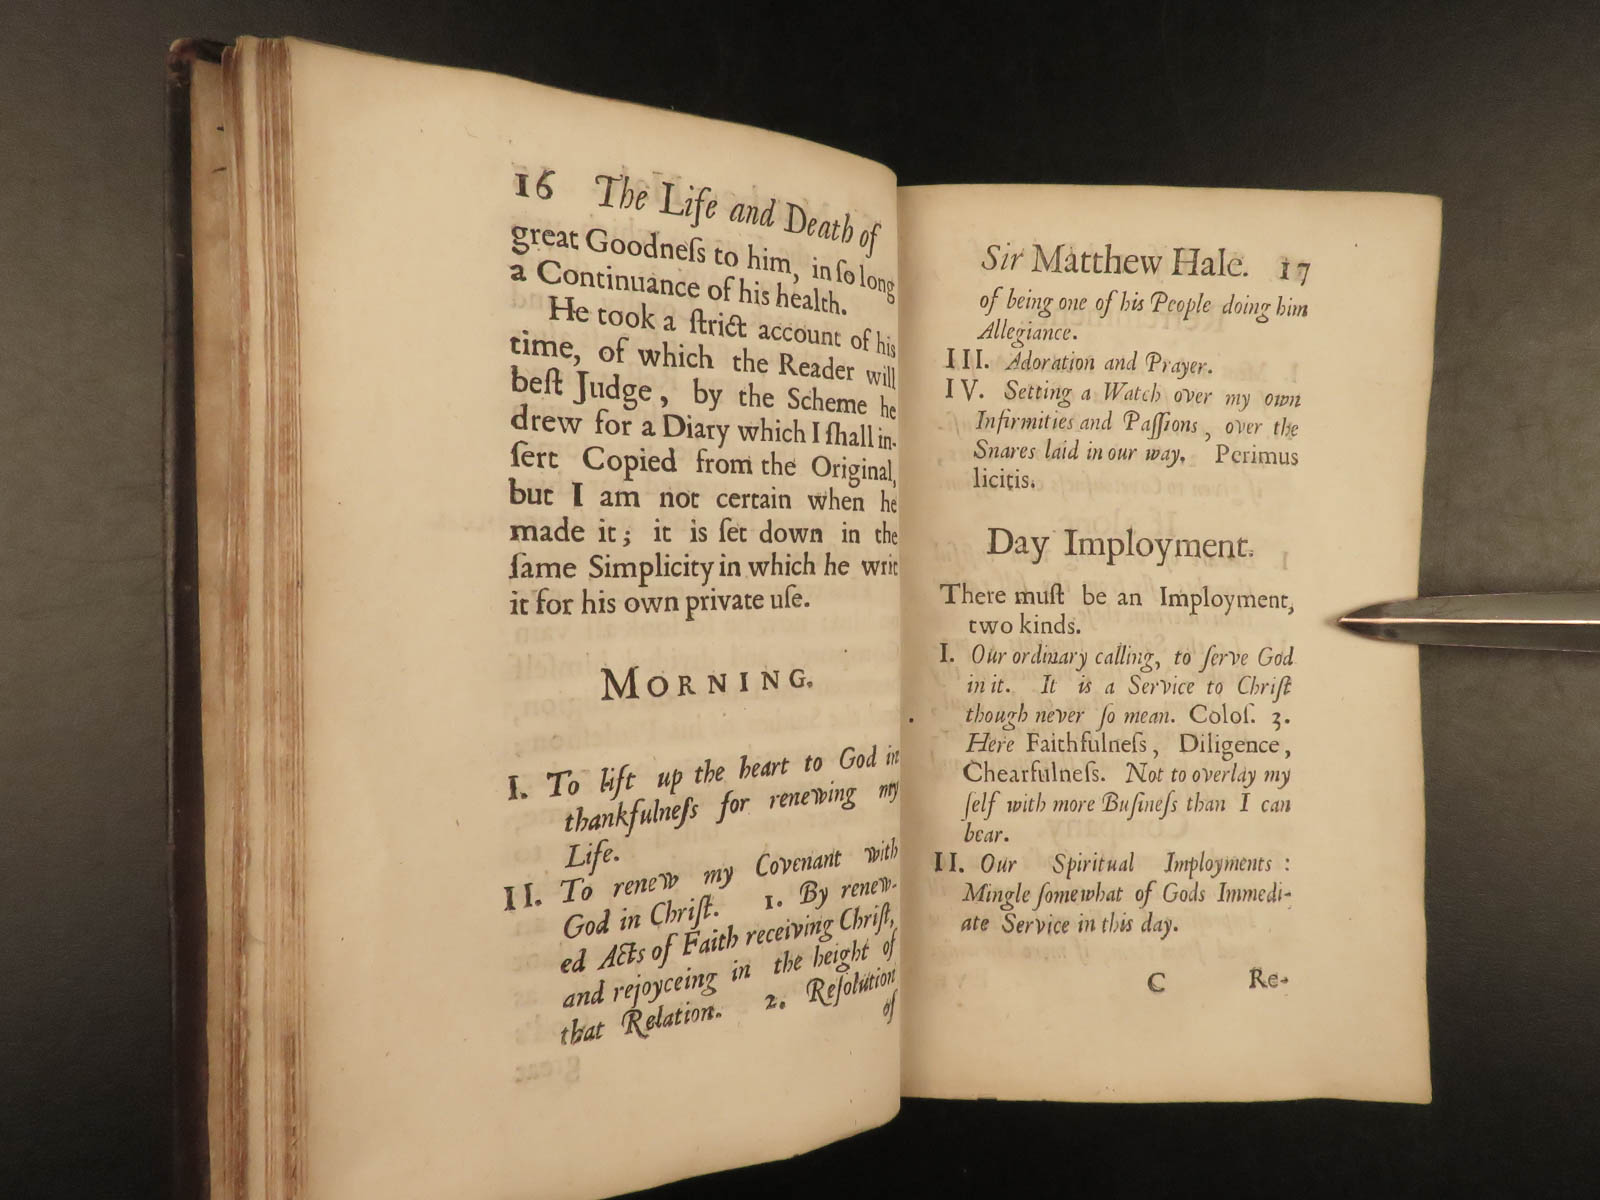 16 The Life and Death of
great Goodneſs to him, in ſo long
a Continuance of his health.
He took a ſtrict account of his
time, of which the Reader will
beſt Judge, by the Scheme he
drew for a Diary which I ſhall in-
ſert Copied from the Original,
but I am not certain when he
made it; it is ſet down in the
ſame Simplicity in which he writ
it for his own private uſe.
MORNING.
I. To lift up the heart to God in
thankfulneſs for renewing my
Life.
II. To renew my Covenant with
God in Chriſt. 1. By renew-
ed Acts of Faith receiving Chriſt,
and rejoyceing in the height of
that Relation. 2. Reſolution
of
Sir Matthew Hale. 17
of being one of his People doing him
Allegiance.
III. Adoration and Prayer.
IV. Setting a Watch over my own
Infirmities and Paſſions, over the
Snares laid in our way. Perimus
licitis.
Day Imployment.
There muſt be an Imployment,
two kinds.
I. Our ordinary calling, to ſerve God
in it. It is a Service to Chriſt
though never ſo mean. Coloſ. 3.
Here Faithfulneſs, Diligence,
Chearfulneſs. Not to overlay my
ſelf with more Buſineſs than I can
bear.
II. Our Spiritual Imployments :
Mingle ſomewhat of Gods Immedi-
ate Service in this day.
C Re-